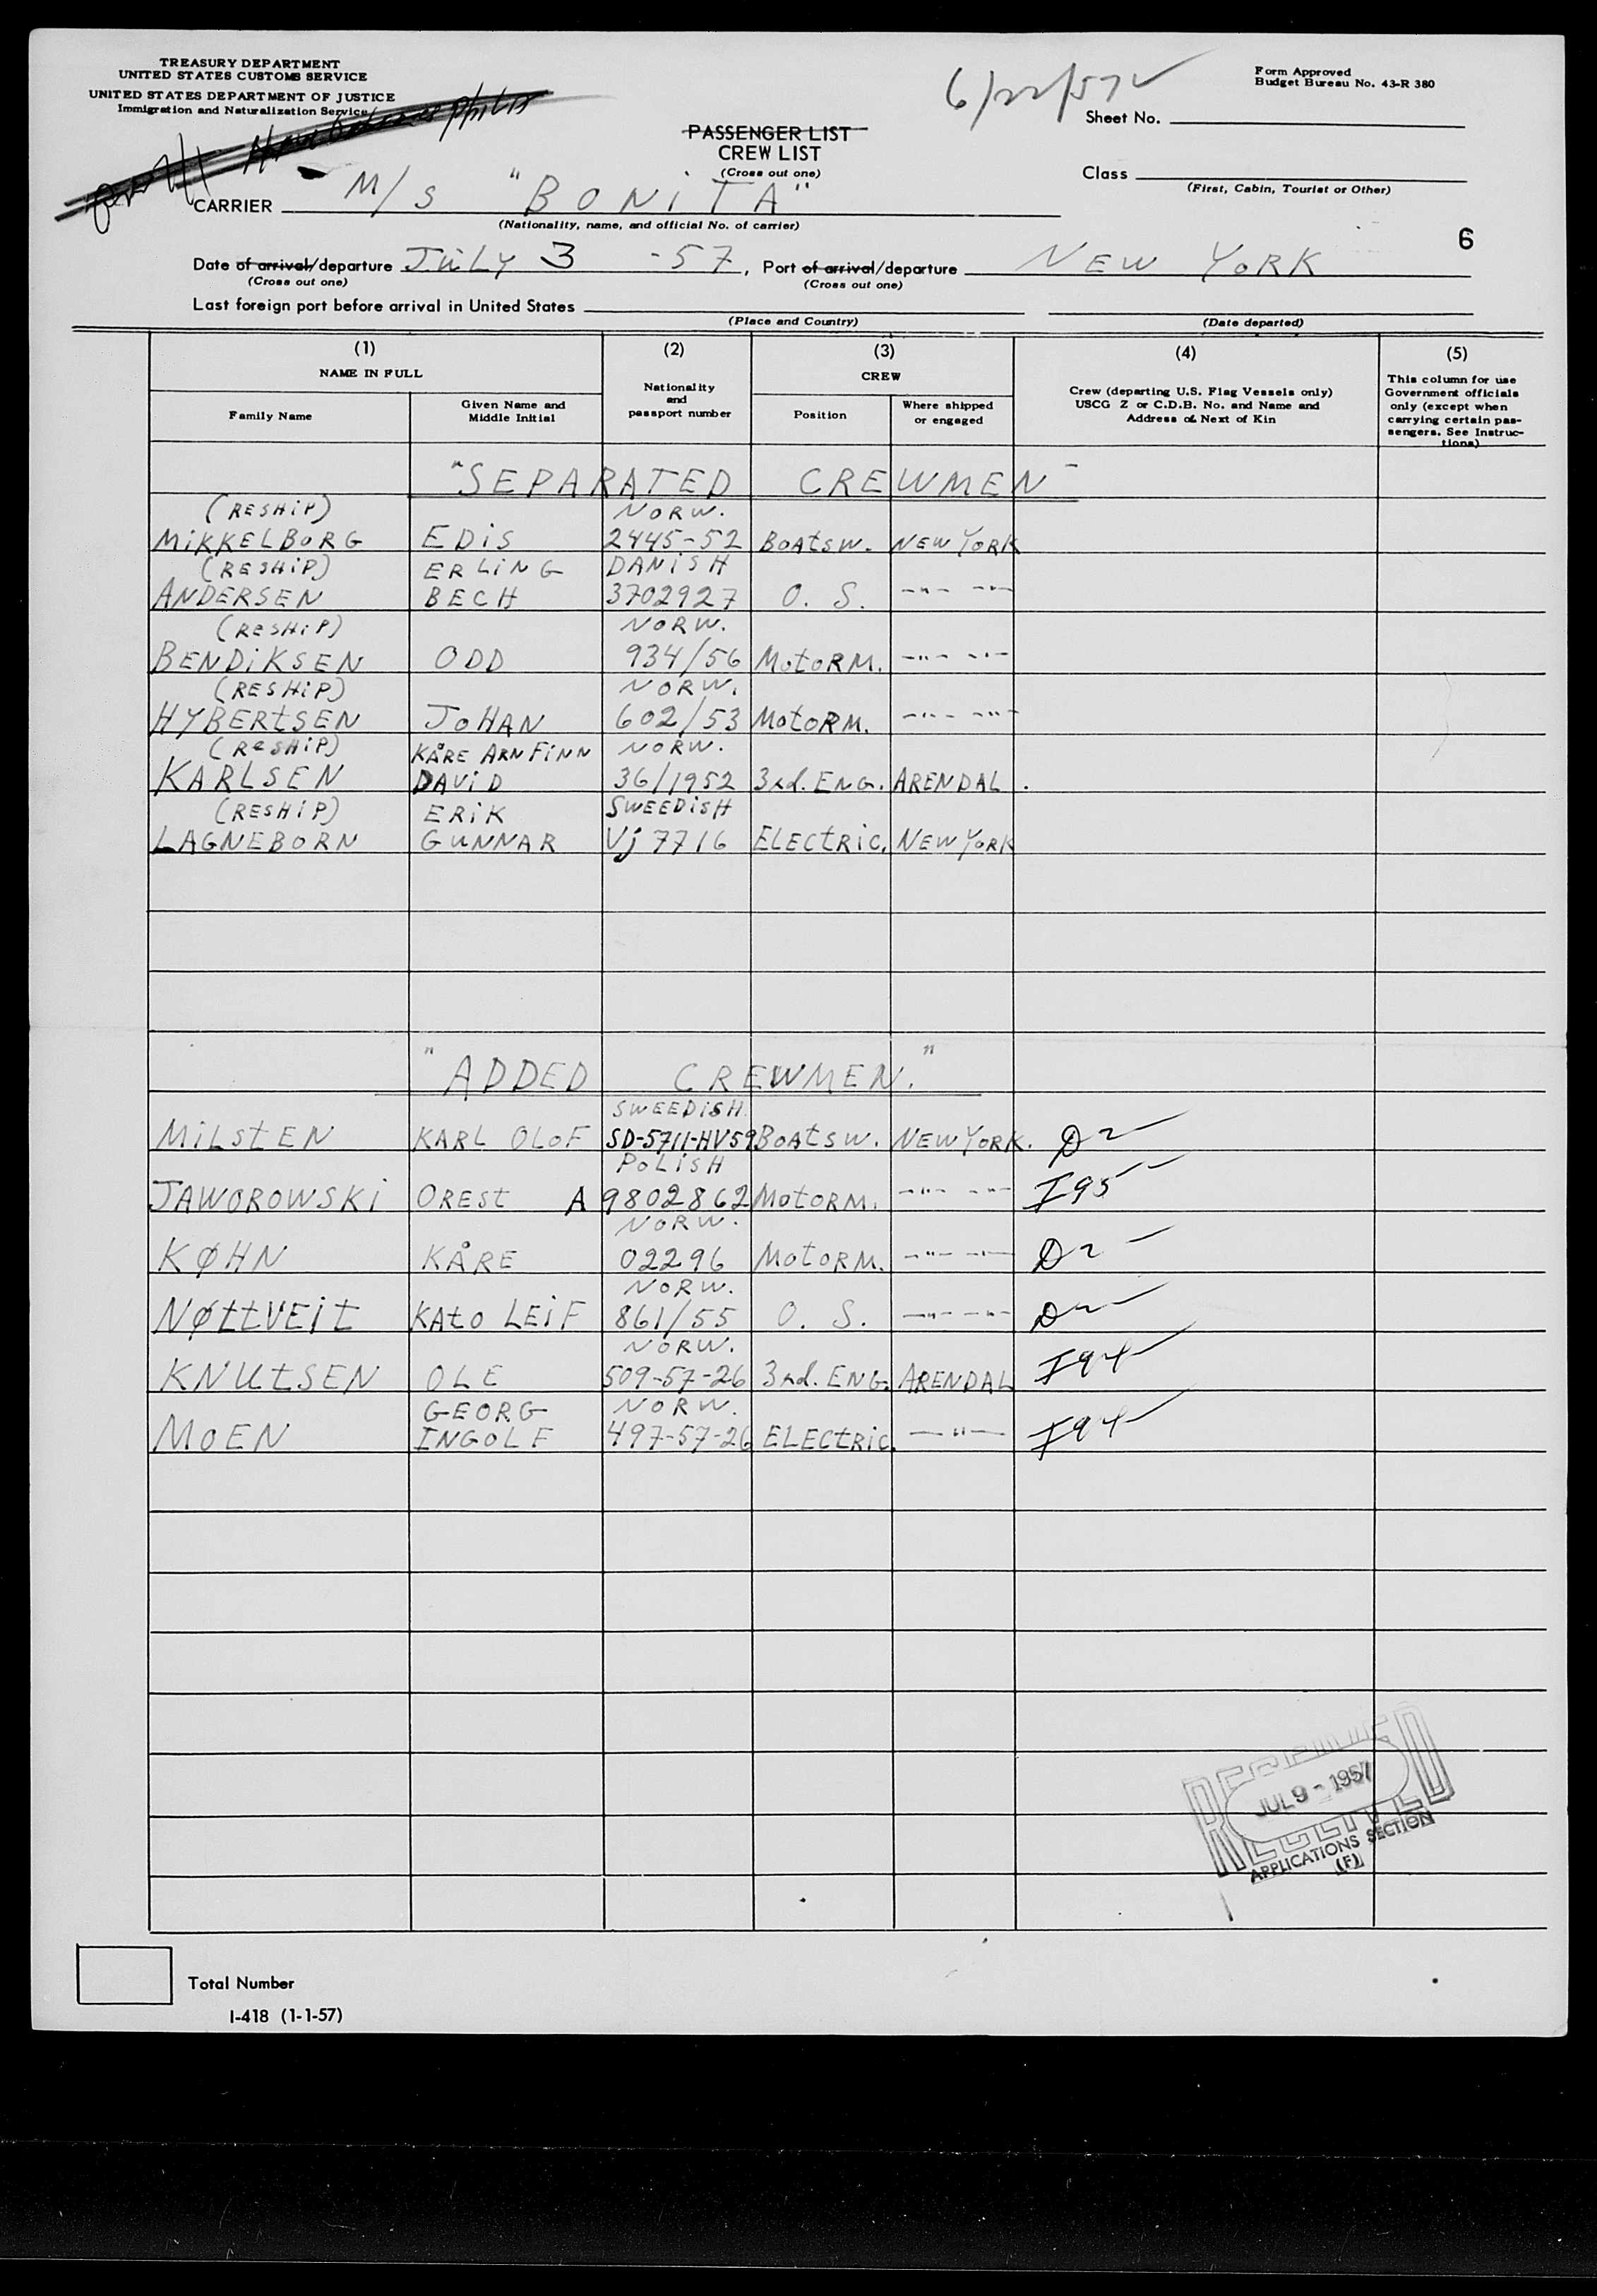 TREASURY DEPARTMENT
UNITED STATES CUSTOMS SERVICE
UNITED STATES DEPARTMENT OF JUSTICE
Immigration and Naturalization Service
6/22/57
Form Approved
Budget Bureau No. 43-R 380
Sheet No.
PASSENGER LIST
CREW LIST
(Cross out one)
Class
(First, Cabin, Tourist or Other)
CARRIER M/S "BONiTA"
(Nationality, name, and official No. of carrier)
6
Date of arrival/departure JULY 3 -57, Port of arrival/departure NEW YORK
(Cross out one) (Cross out one)
Last foreign port before arrival in United States
(Place and Country) (Date departed)
(1) (2) (3) (4) (5)
NAME IN FULL
Family Name
Given Name and Middle Initial
Nationality and passport number
CREW
Position
Where shipped or engaged
Crew (departing U.S. Flag Vessels only)
USCG Z or C.D.B. No. and Name and
Address of Next of Kin
This column for use
Government officials
only (except when
carrying certain pas-
sengers. See Instruc-
tions)
"SEPARATED CREWMEN"
(RESHiP) NORW.
MiKKELBORG EDiS 2445-52 BOAtSW. NEW YORK
(RESHiP) ERLiNG DANiSH
ANDERSEN BECH 3702927 O. S. -"- -"-
(RESHiP) NORW.
BENDiKSEN ODD 934/56 MOtORM. -"- -"-
(RESHiP) NORW.
HYBERtSEN JOHAN 602/53 MOtORM. -"- -"-
(RESHiP) KÅRE ARNFiNN NORW.
KARLSEN DAViD 36/1952 3rd. ENG. ARENDAL.
(RESHiP) ERiK SWEEDiSH
LAGNEBORN GUNNAR Vj 7716 ELECtRiC. NEW YORK
"ADDED CREWMEN."
SWEEDiSH
MiLStEN KARL OLOF SD-5711-HV59 BOAtSW. NEW YORK. D2
POLiSH
JAWOROWSKi ORESt A 9802862 MOtORM. -"- -"- I95
NORW.
KØHN KÅRE 02296 MOtORM. -"- -"- D2
NORW.
NØttVEit KAtO LEiF 861/55 O. S. -"- -"- D2
NORW.
KNUtSEN OLE 509-57-26 3rd. ENG. ARENDAL I94
GEORG NORW.
MOEN INGOLF 497-57-26 ELECtRiC. -"- I94
RECEIVED
JUL 9 - 1957
APPLICATIONS SECTION
(F)
Total Number
I-418 (1-1-57)